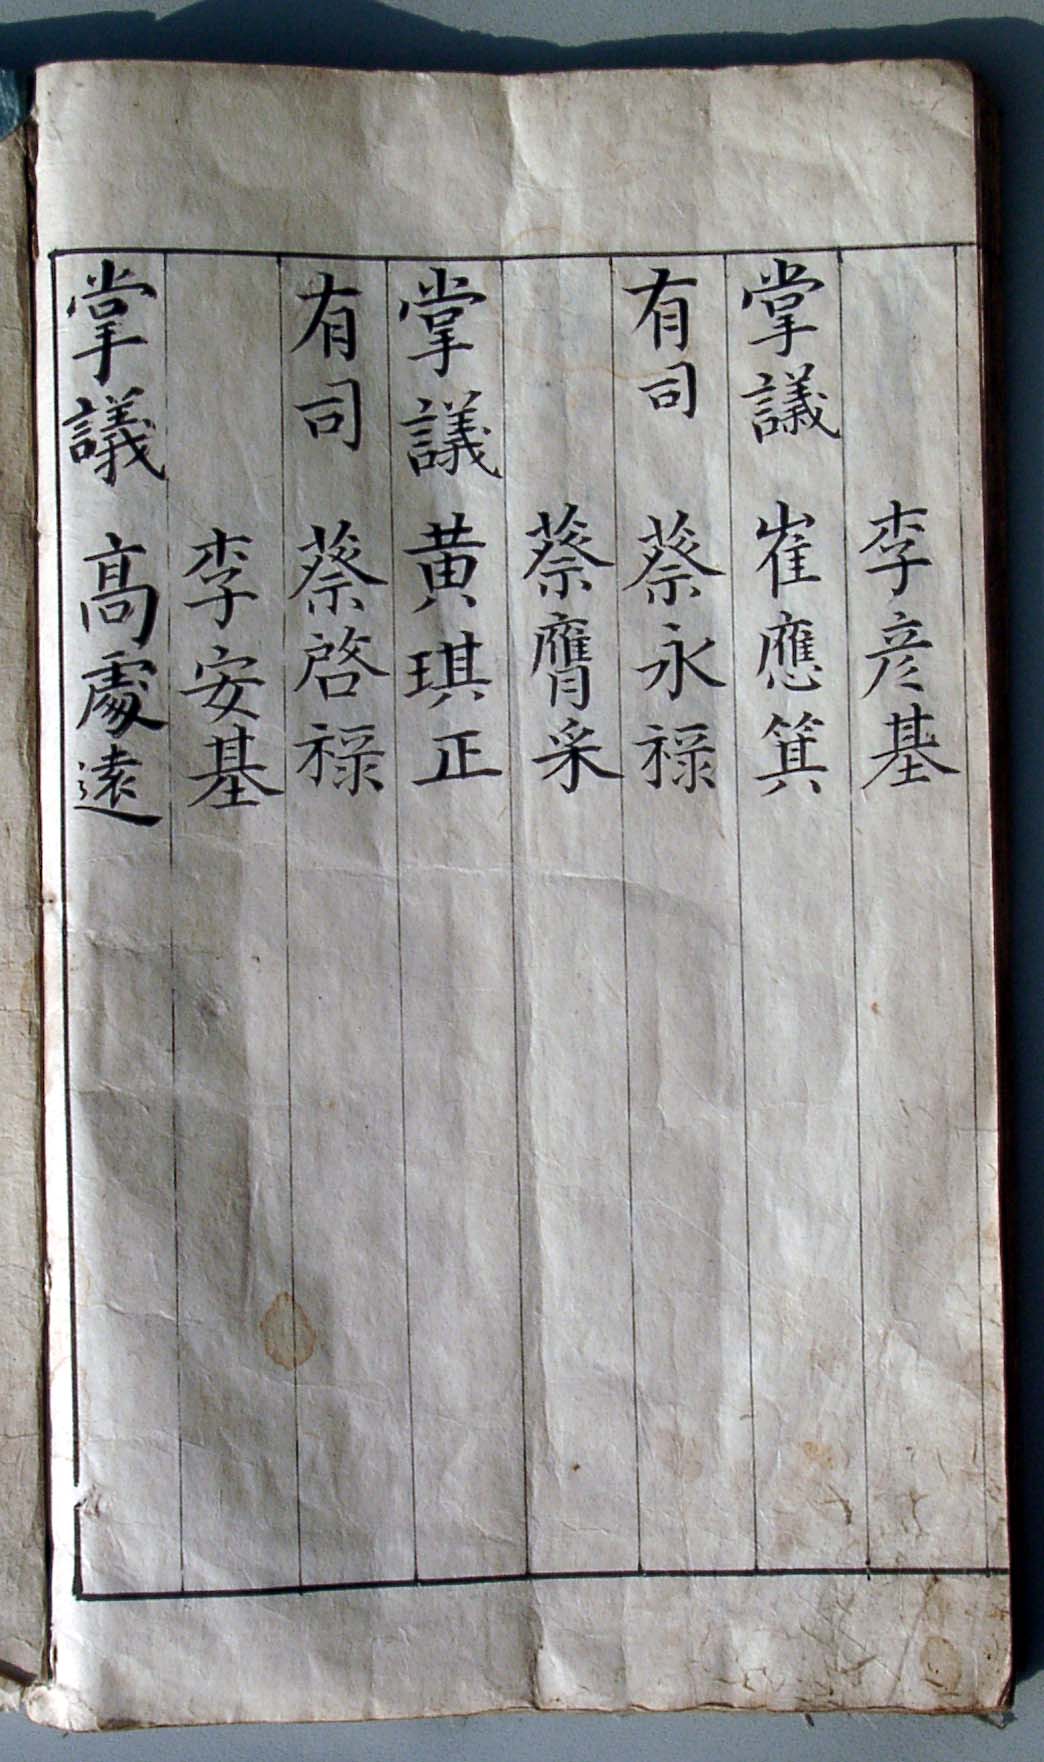 李彦基
掌議 崔應箕
有司 蔡永祿
蔡膺采
掌議 黃琪正
有司 蔡啓祿
李安基
掌議 高處遠